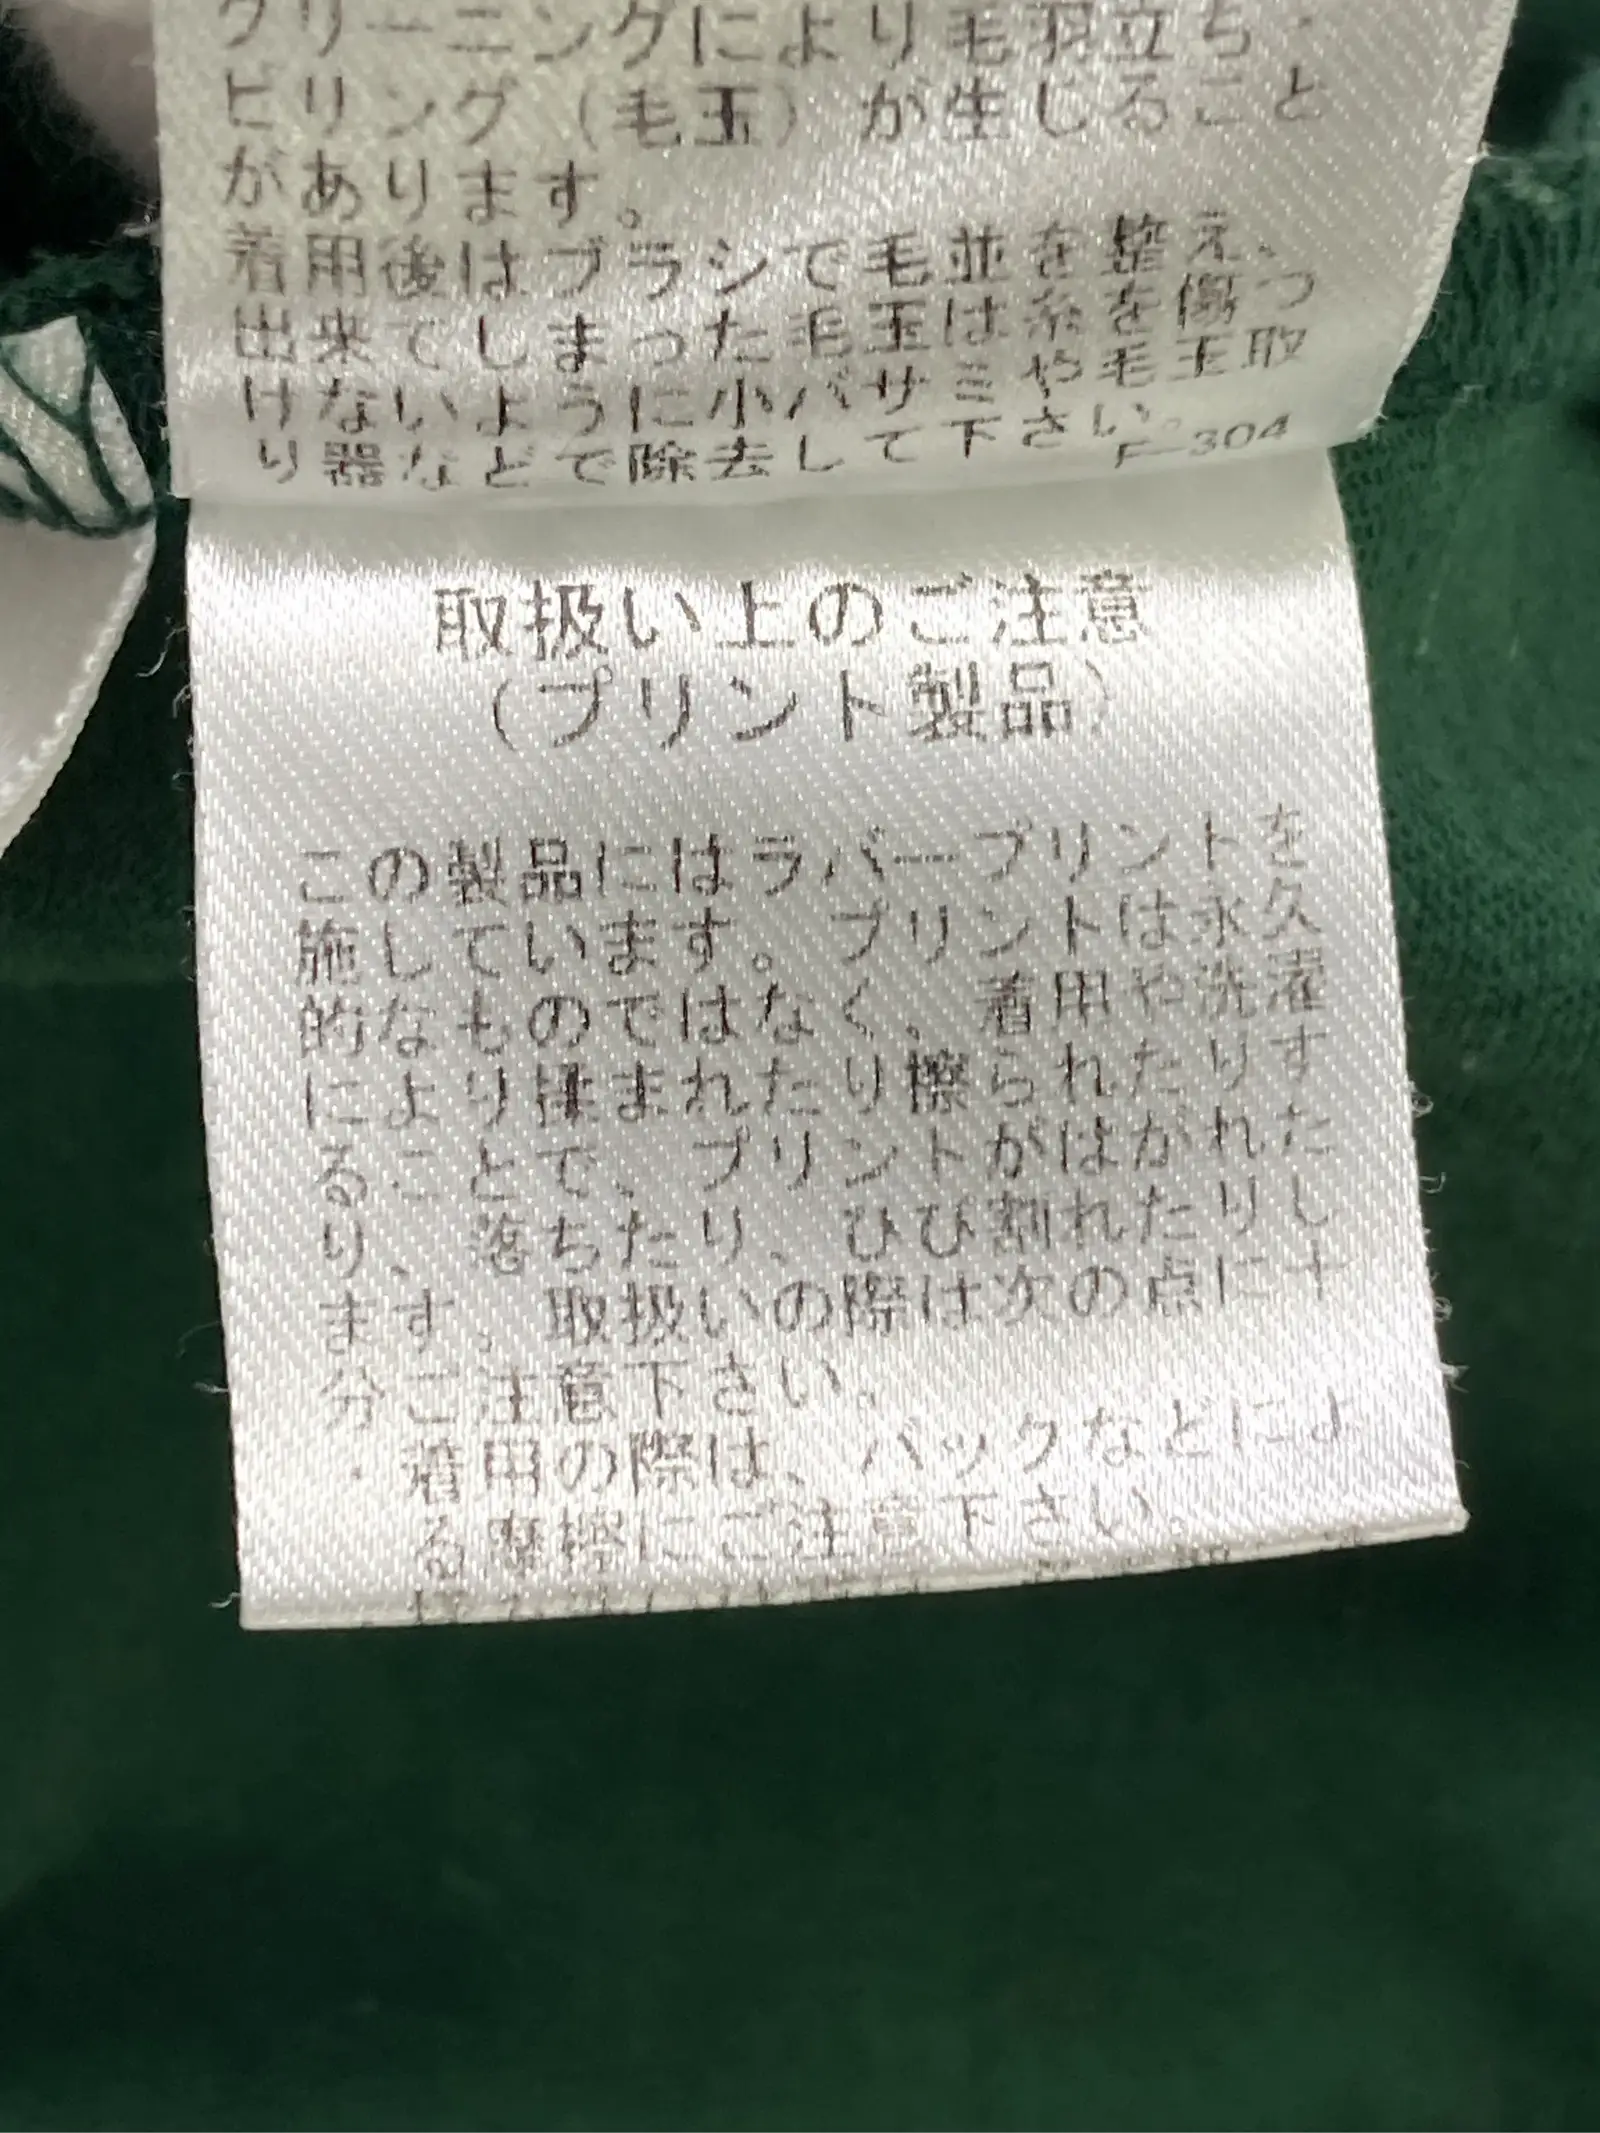 クリーニングにより毛羽立ち・
ピリング（毛玉）が生じること
があります。
着用後はブラシで毛並を整え、
出来てしまった毛玉は糸を傷つ
けないように小バサミや毛玉取
り器などで除去して下さい。
F-304
取扱い上のご注意
（プリント製品）
この製品にはラバープリントを
施しています。プリントは永久
的なものではなく、着用や洗濯
により揉まれたり擦られたりす
ることで、プリントがはがれた
り、落ちたり、ひび割れたりし
ます。取扱いの際は次の点に十
分ご注意下さい。
・着用の際は、バックなどによ
る摩擦にご注意下さい。